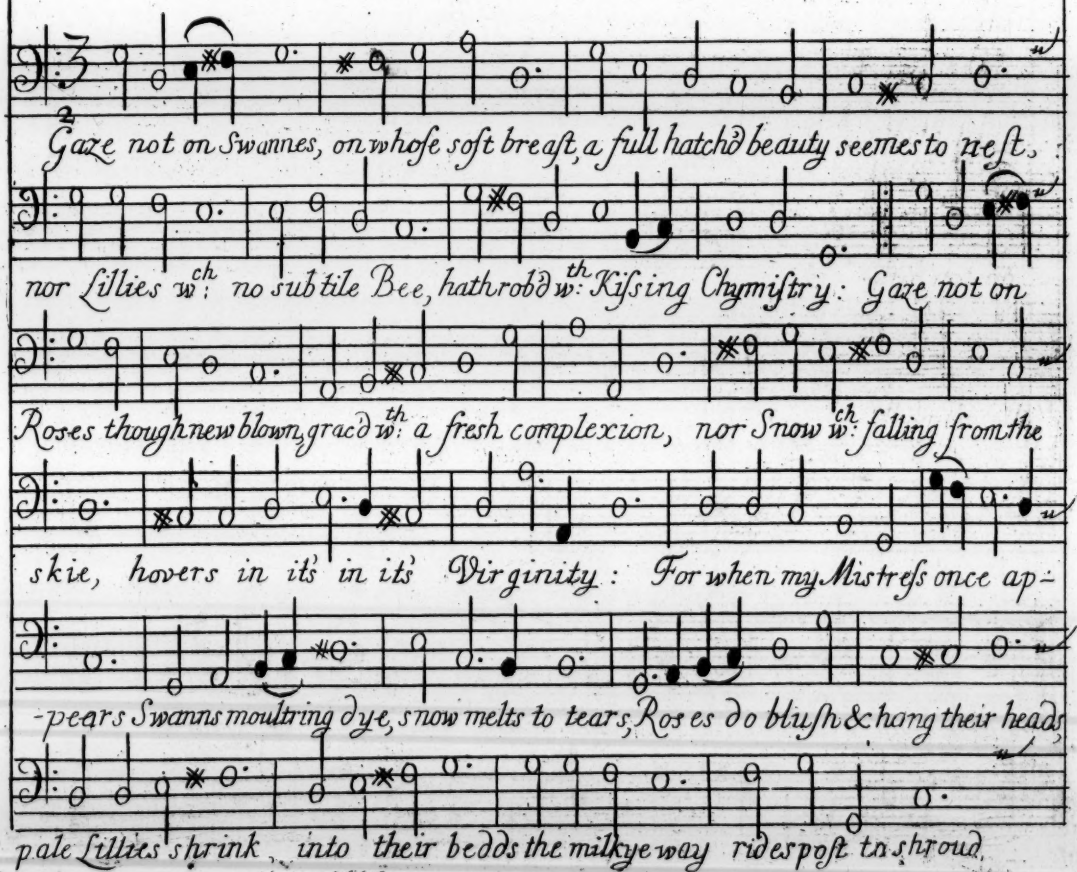 3
2
Gaze not on Swannes, on whose soft breast, a full hatch'd beauty seemes to nest.
nor Lillies wch: no subtile Bee, hath robd wth: Kissing Chymistry: Gaze not on
Roses though new blown, grac'd wth: a fresh complexion, nor Snow wch: falling from the
skie, hovers in it's in it's Virginity: For when my Mistress once ap-
-pears Swanns moultring dye, snow melts to tears, Roses do blush & hang their heads,
pale Lillies shrink, into their bedds the milkye way rides post to shroud,